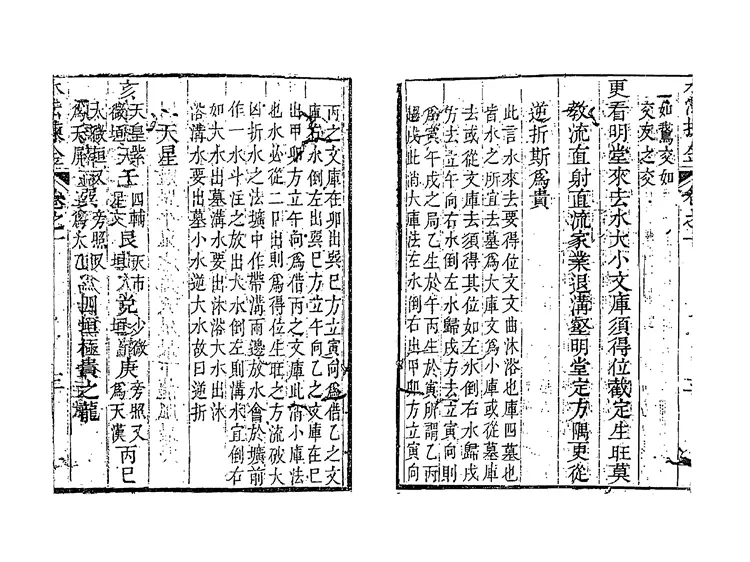 如鸞交如
交友之交
更看明堂來去水大小文庫須得位截定生旺莫
教流直射直流家業退溝壑明堂定方隅更從
逆折斯爲貴
此言水來去要得位文文曲沐浴也庫四墓也
皆水之所宜去墓爲大庫文爲小庫或從墓庫
去或從文庫去須得其位如左水倒右水歸戌
方去立午向右水倒左水歸戌方去立寅向則
爲寅午戌之局乙生於午丙生於寅所謂乙丙
趨戌此消大庫法左水倒右出甲卯方立寅向
丙之文庫在卯出巽巳方立寅向爲借乙之文
庫右水倒左出巽巳方立午向乙之文庫在巳
出甲卯方立午向爲借丙之文庫此消小庫法
也水必從二口出則爲得位生旺之方流破大
凶折水之法壙中作帶溝兩邊放水會於壙前
作一水斗注之放出大水倒左則溝水宜倒右
如大水出墓溝水要出沐浴大水出沐
浴溝水要出墓小水逆大水故曰逆折
天星
亥 天皇紫微垣 壬 四輔 艮 天市垣 兌 少微垣 庚 旁照又爲天漢 丙巳
太微垣又 巽 旁照又爲太乙 四垣極貴之龍
卷之一